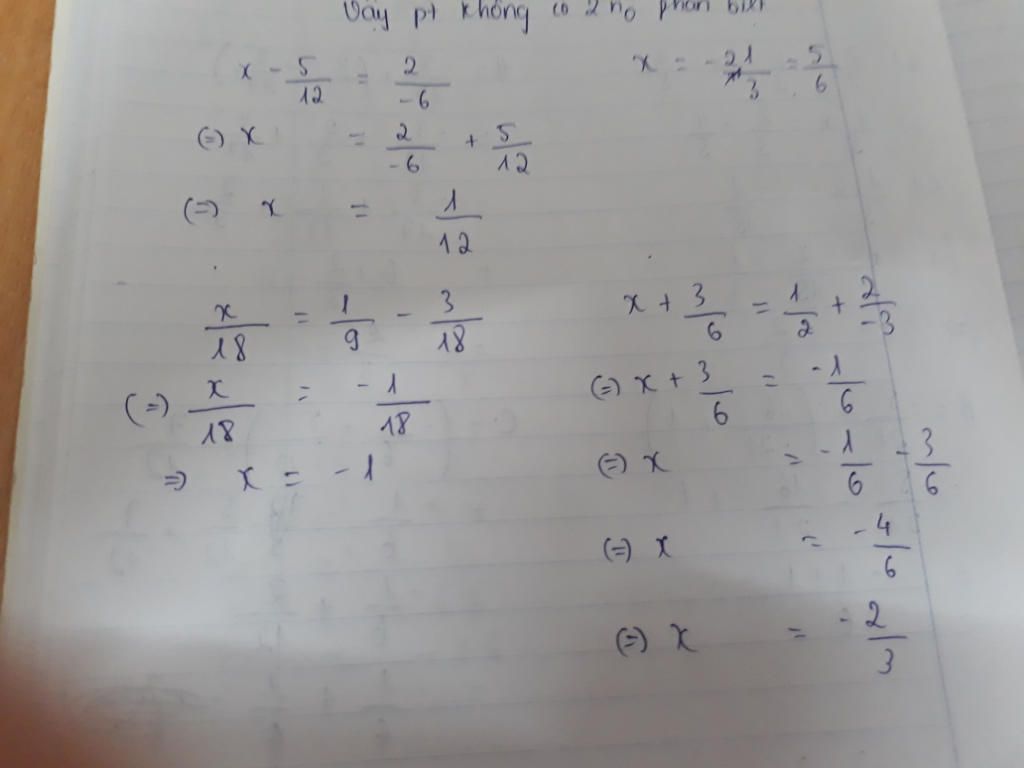 Vậy pt không có 2 n0 phân biệt
x - 5/12 = 2/-6
(=) x = 2/-6 + 5/12
(=) x = 1/12
x/18 = 1/9 - 3/18
(=) x/18 = -1/18
=) x = -1
= 5/6
x + 3/6 = 1/2 + 2/-3
(=) x + 3/6 = -1/6
(=) x = -1/6 - 3/6
(=) x = -4/6
(=) x = -2/3